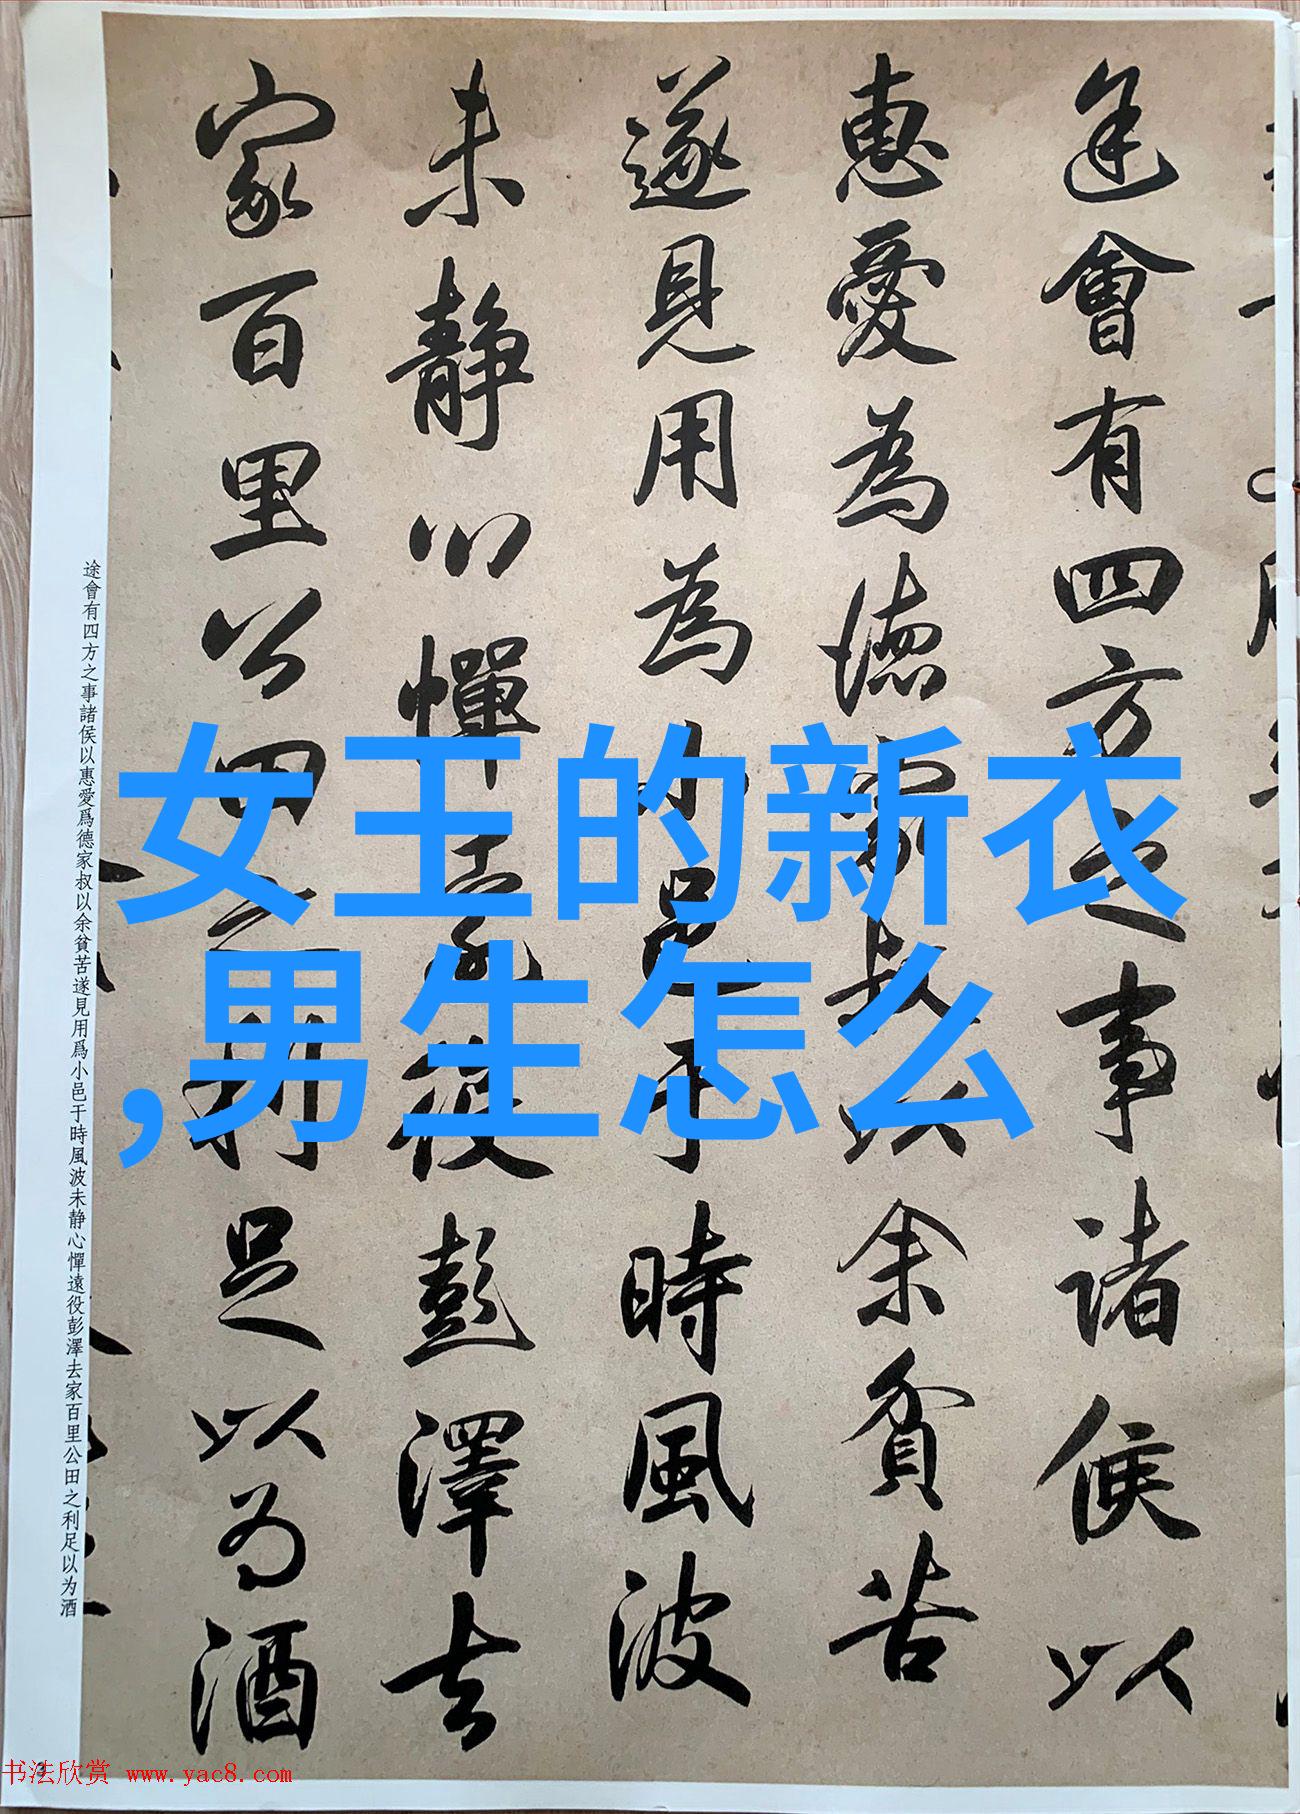 途會有四方之事諸侯以
惠愛為德家叔以余貧苦
遂見用為小邑于時風波
未静心憚遠役彭澤去
家百里公田之利足以为酒
途會有四方之事諸侯以惠愛爲德家叔以余貧苦遂見用爲小邑于時風波未静心憚遠役彭澤去家百里公田之利足以为酒
女王的新衣
,男生怎么
3
书法欣赏 www.yac8.com